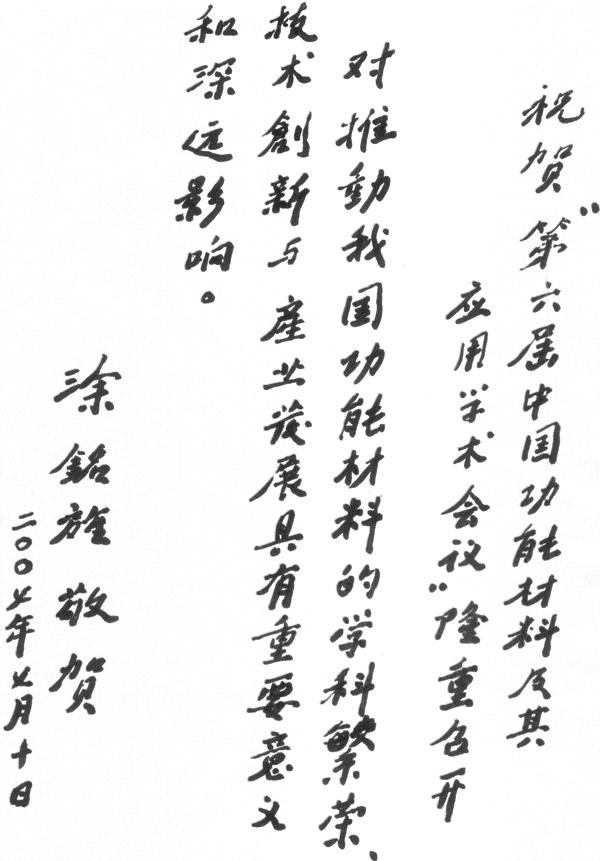 祝贺"第六届中国功能材料及其
应用学术会议"隆重召开
对推動我国功能材料的学科繁荣、
技术創新与產业发展具有重要意义
和深远影响。
涂銘旌敬贺
二〇〇七年七月十日